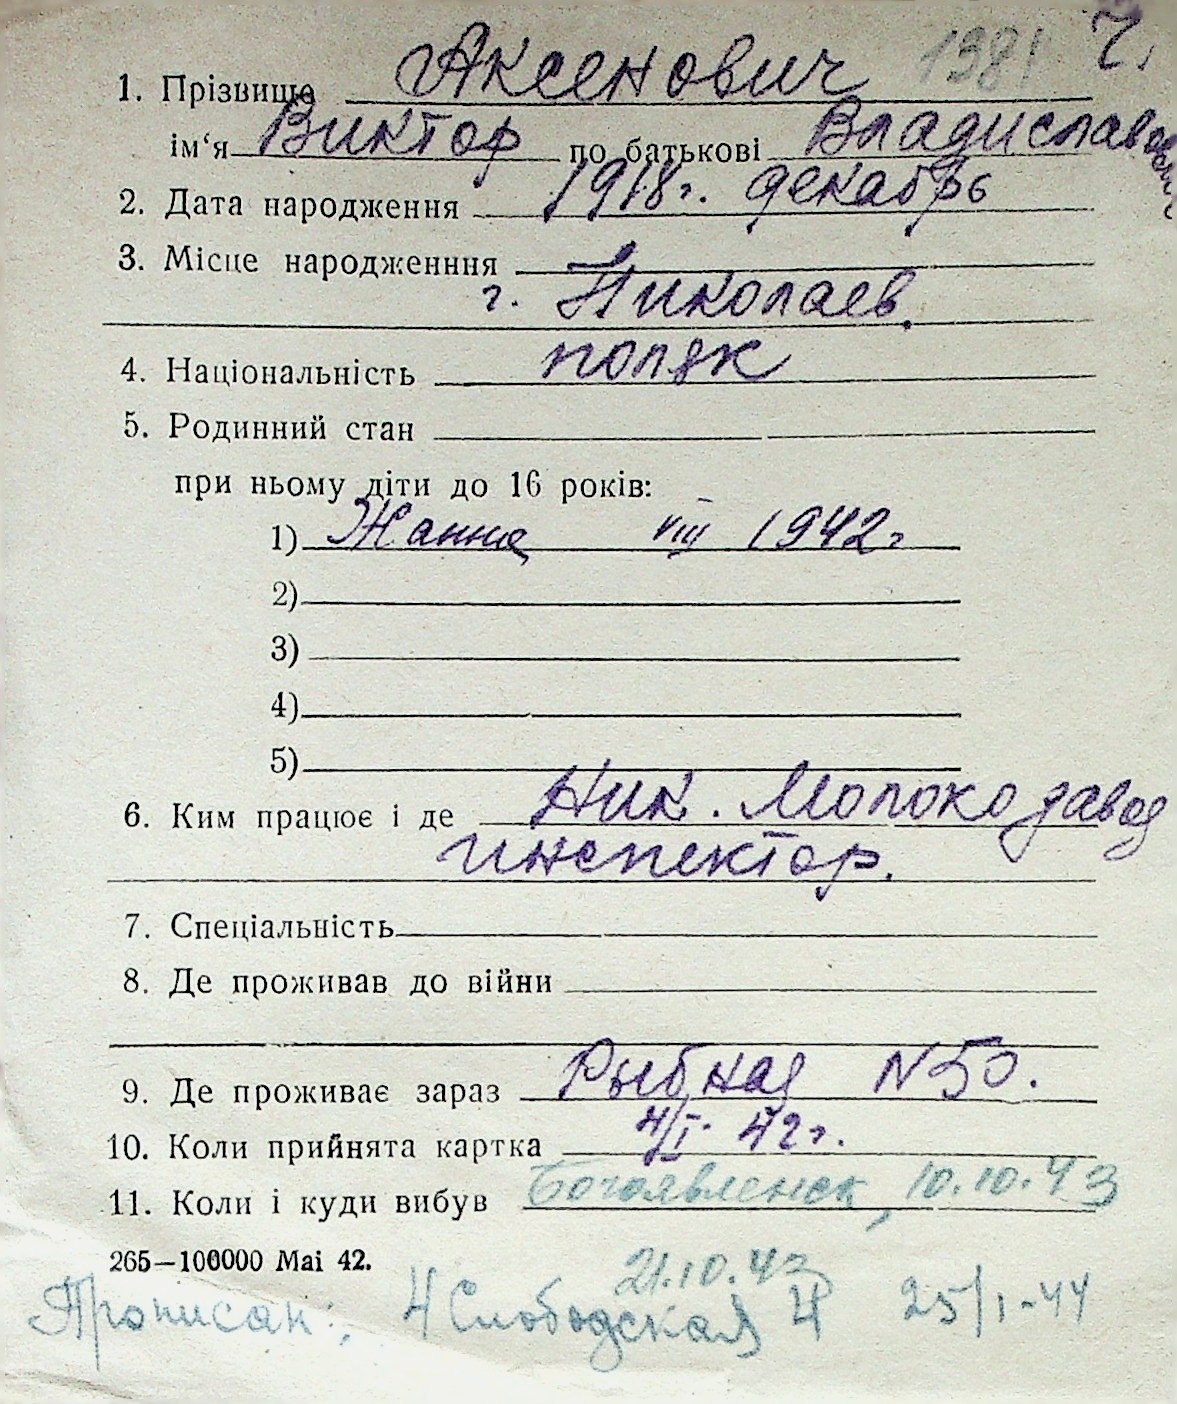 1381 Ч.
1. Прізвище Аксенович
ім'я Виктор по батькові Владиславович
2. Дата народження 1918 г. декабрь
3. Місце народженння
г. Николаев.
4. Національність поляк
5. Родинний стан
при ньому діти до 16 років:
1) Жанна VIII 1942 г
2)
3)
4)
5)
6. Ким працює і де Ник. Молокозавод
инспектор.
7. Спеціальність
8. Де проживав до війни
9. Де проживає зараз Рыбная N 50.
10. Коли прийнята картка 4/I. 42 г.
11. Коли і куди вибув Богоявленск, 10.10.43
265—100000 Mai 42.
21.10.43
Прописан: 4 Слободская 4 25/I-44